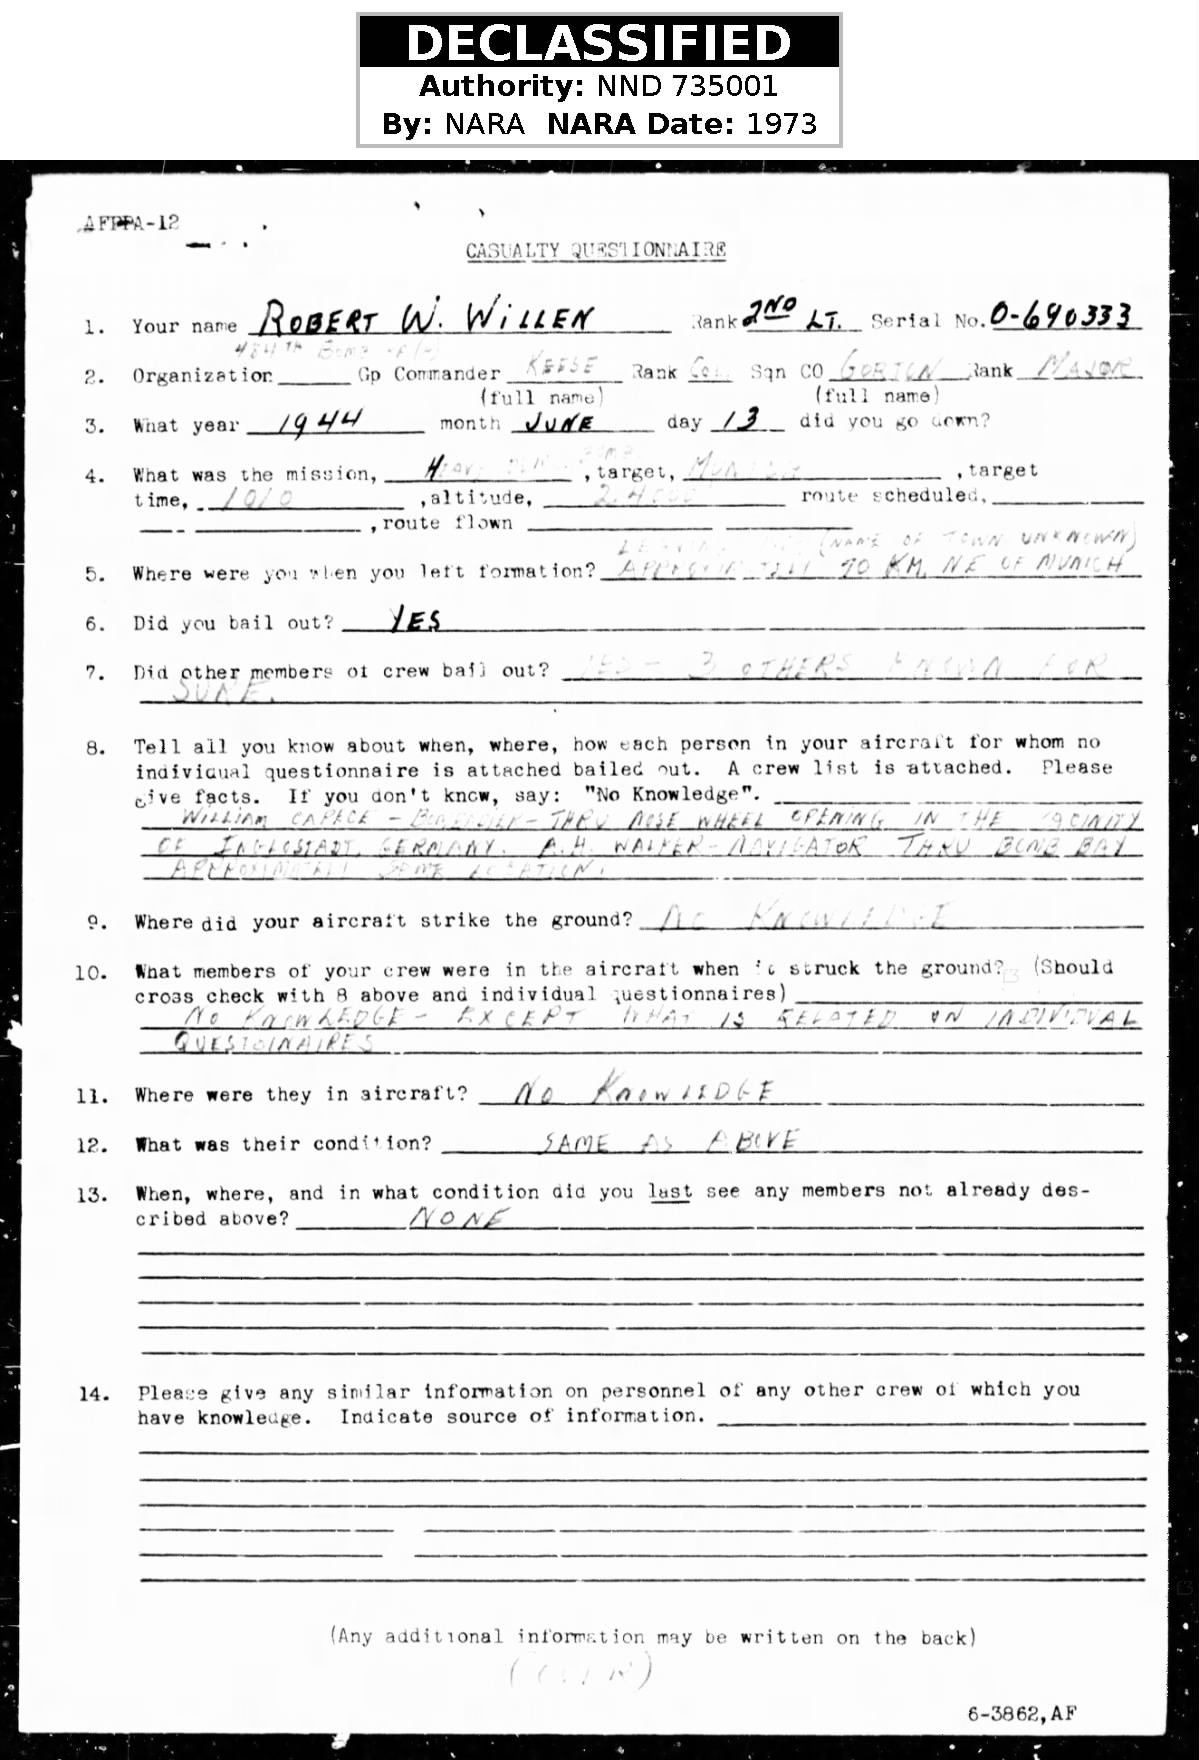 DECLASSIFIED
Authority: NND 735001
By: NARA NARA Date: 1973
AFPPA-12
CASUALTY QUESTIONNAIRE
1. Your name ROBERT W. WILLEN Rank 2ND LT. Serial No. O-690333
484TH BOMB
2. Organization Gp Commander KEESE Rank COL. Sqn CO GORTON Rank MAJOR
(full name) (full name)
3. What year 1944 month JUNE day 13 did you go down?
4. What was the mission, HEAVY BOMB , target, MUNICH , target
time, 1010 , altitude, 24000 route scheduled,
, route flown
(NAME OF TOWN UNKNOWN)
5. Where were you when you left formation? APPROXIMATELY 70 KM. NE OF MUNICH
6. Did you bail out? YES
7. Did other members of crew bail out? YES - 3 OTHERS KNOWN FOR
SURE.
8. Tell all you know about when, where, how each person in your aircraft for whom no
individual questionnaire is attached bailed out. A crew list is attached. Please
give facts. If you don't know, say: "No Knowledge".
WILLIAM CAPECE - BOMBARDIER - THRU NOSE WHEEL OPENING IN THE VACINITY
OF INGLOSTADT, GERMANY. A.H. WALKER - NAVIGATOR THRU BOMB BAY
APPROXIMATELY SAME LOCATION.
9. Where did your aircraft strike the ground? NO KNOWLEDGE
10. What members of your crew were in the aircraft when it struck the ground? (Should
cross check with 8 above and individual questionnaires)
NO KNOWLEDGE - EXCEPT WHAT IS RELATED ON INDIVIDUAL
QUESTOINAIRES
11. Where were they in aircraft? NO KNOWLEDGE
12. What was their condition? SAME AS ABOVE
13. When, where, and in what condition did you last see any members not already des-
cribed above? NONE
14. Please give any similar information on personnel of any other crew of which you
have knowledge. Indicate source of information.
(Any additional information may be written on the back)
(OVER)
6-3862,AF